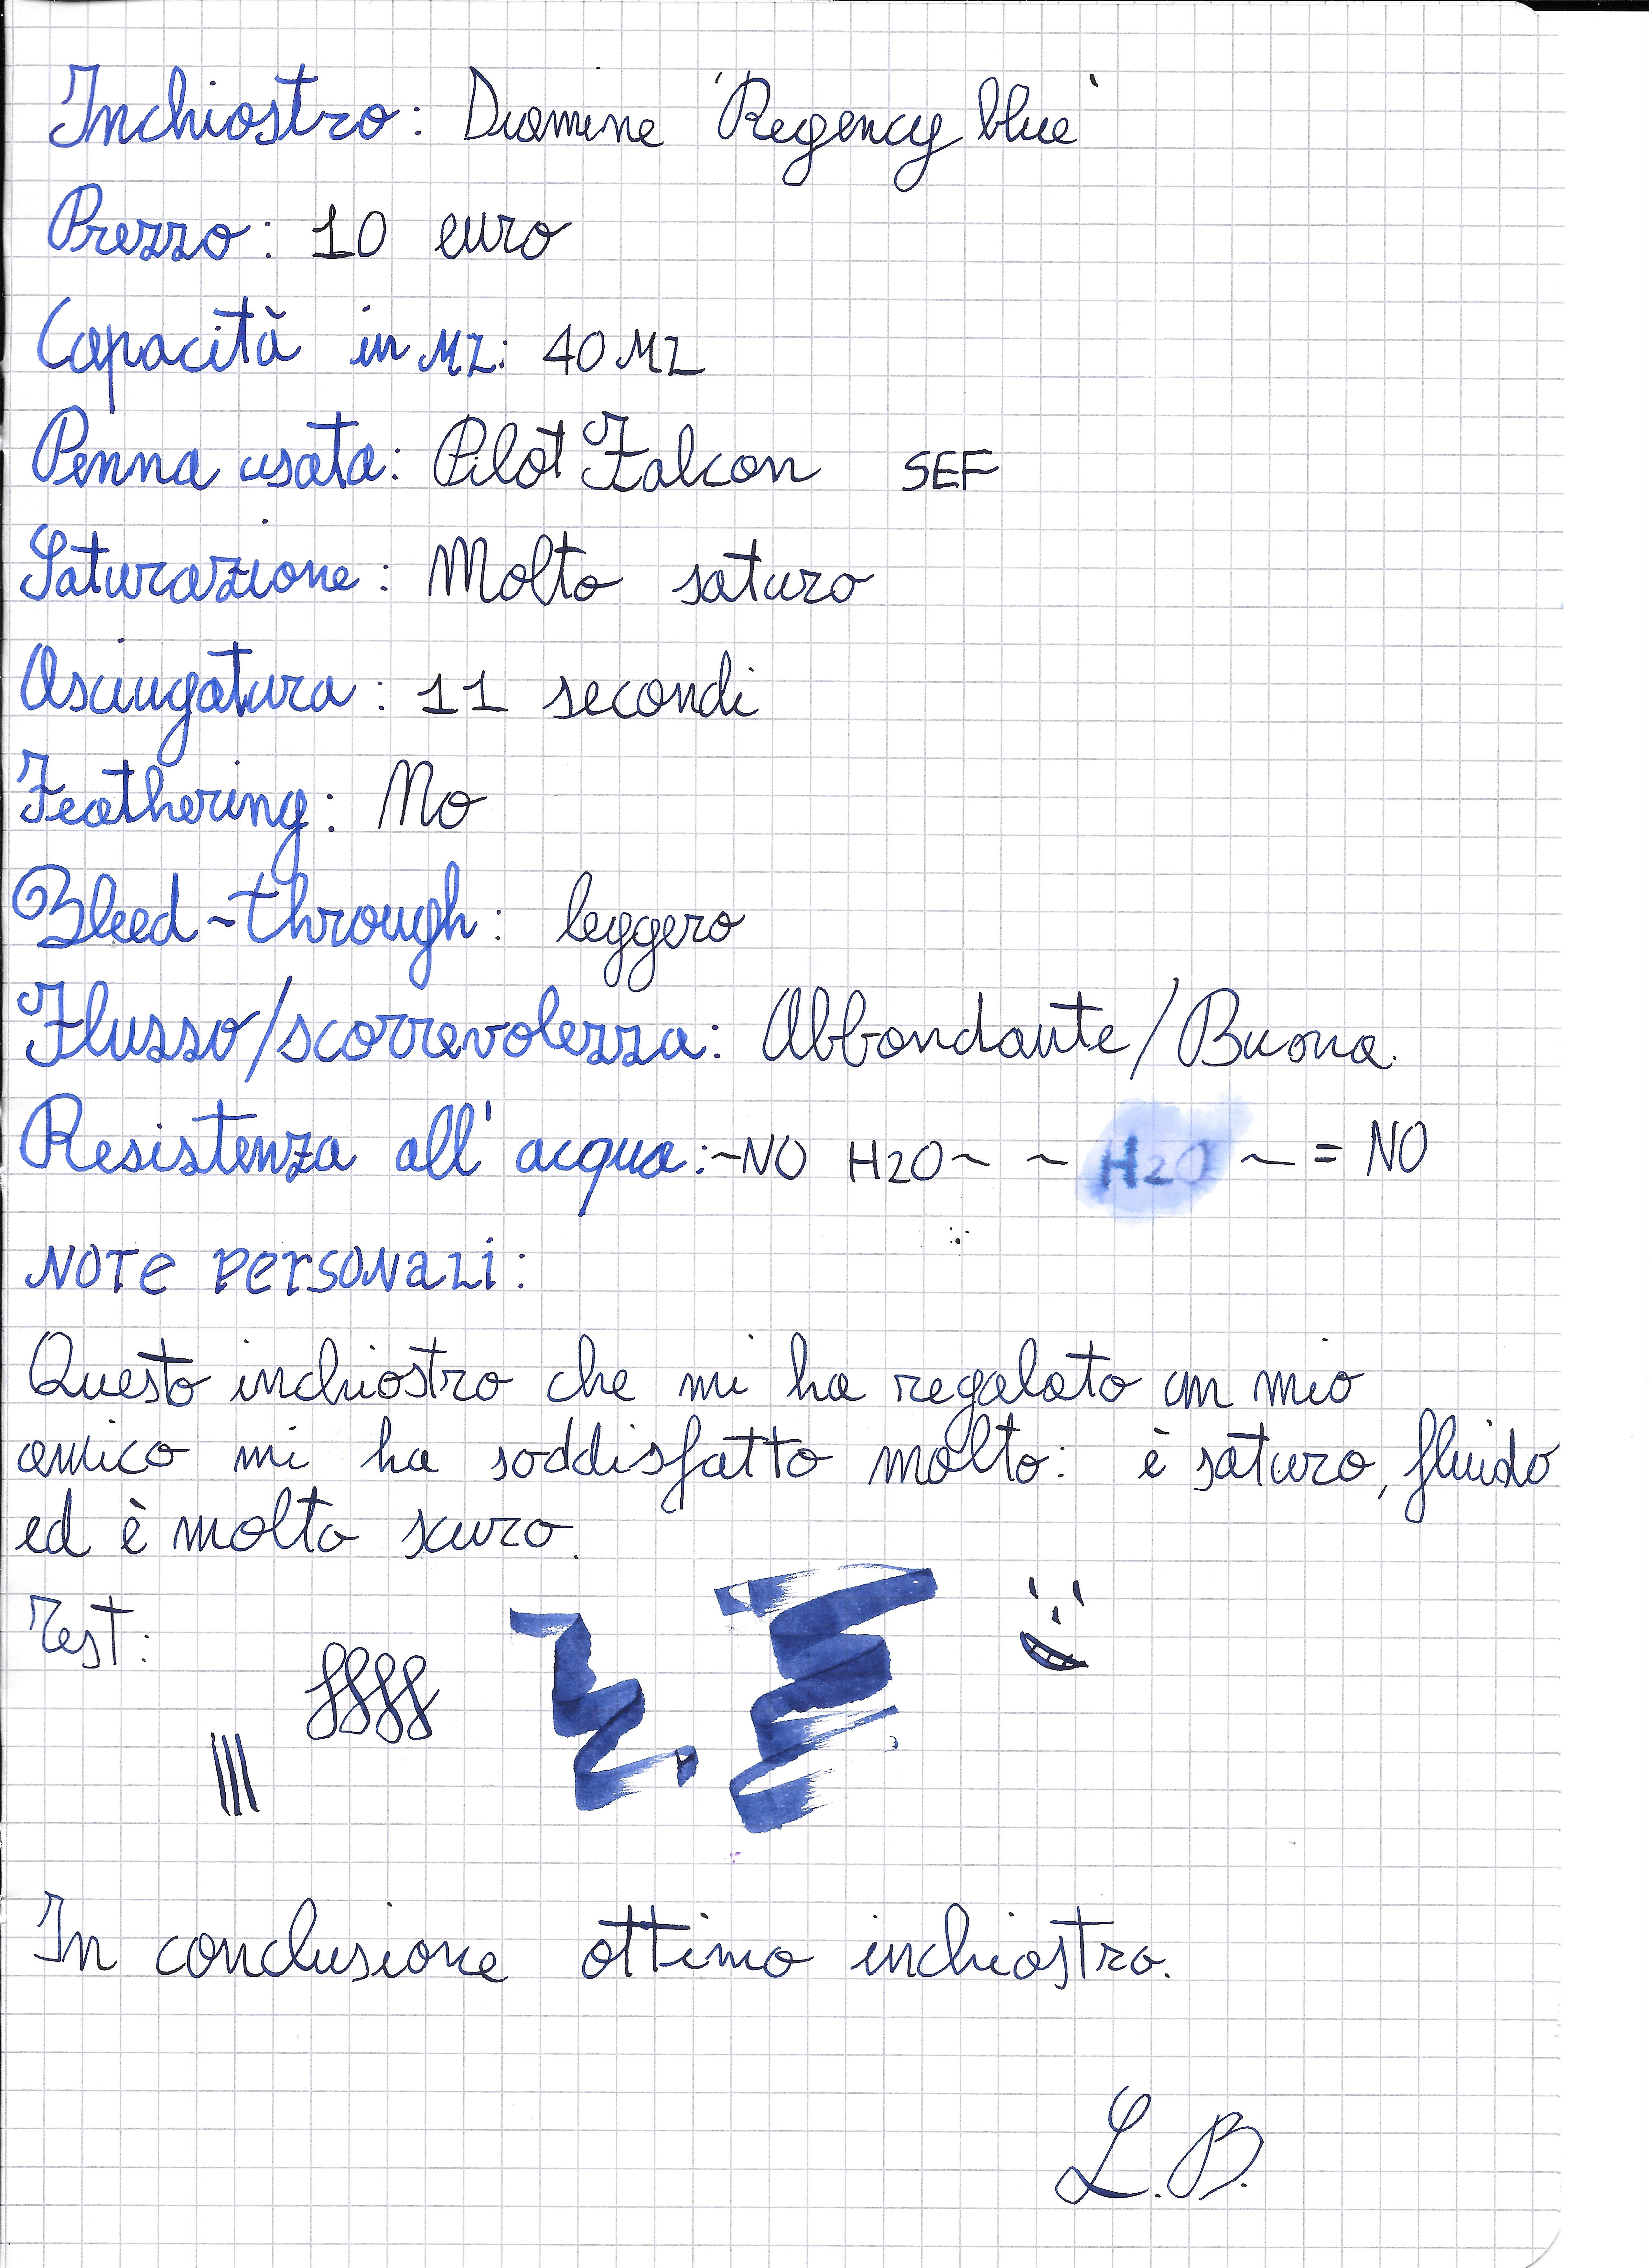 Inchiostro: Diamine 'Regency blue'
Prezzo: 10 euro
Capacità in ML: 40 ML
Penna usata: Pilot Falcon SEF
Saturazione: Molto saturo
Asciugatura: 11 secondi
Feathering: No
Bleed-through: leggero
Flusso/scorrevolezza: Abbondante/Buona.
Resistenza all'acqua: ~NO H2O~ ~ H2O ~ = NO
NOTE PERSONALI:
Questo inchiostro che mi ha regalato un mio
amico mi ha soddisfatto molto: è saturo, fluido
ed è molto scuro.
Test:
In conclusione ottimo inchiostro.
L.B.